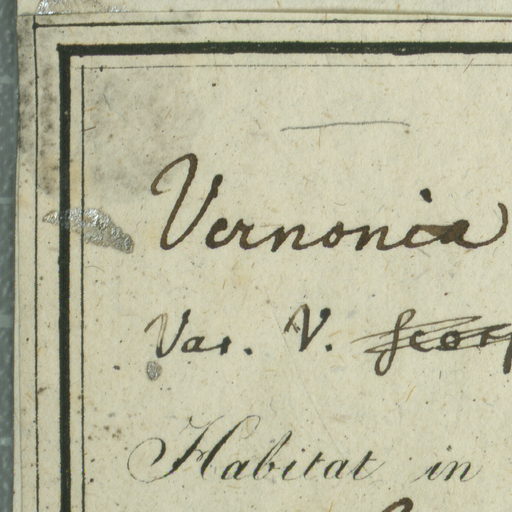 Vernonia
Var. V.
Habitat in